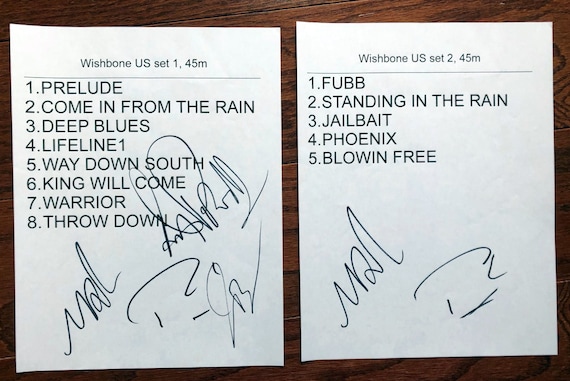 Wishbone US set 1, 45m
1.PRELUDE
2.COME IN FROM THE RAIN
3.DEEP BLUES
4.LIFELINE1
5.WAY DOWN SOUTH
6.KING WILL COME
7.WARRIOR
8.THROW DOWN
Wishbone US set 2, 45m
1.FUBB
2.STANDING IN THE RAIN
3.JAILBAIT
4.PHOENIX
5.BLOWIN FREE